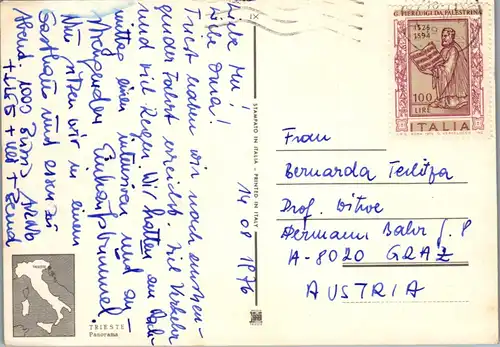 Liebe Mu!
Liebe Oma!
Triest haben wir nach anstren-
gender Fahrt erreicht. Viel Verkehr
und viel Regen. Wir hatten am Nach-
mittag einen intensiven und an-
strengenden Einkaufsbummel.
Nun sitzen wir in einem
Gasthaus und essen zu
Abend. 1000 Bussi
STAMPATO IN ITALIA - PRINTED IN ITALY
14 08 1976
G. PIERLUIGI DA PALESTRINA
1526
1594
100
LIRE
ITALIA
Frau
Bernarda
Prof.
Hermann Bahr g. 8
A-8020 GRAZ
AUSTRIA
TRIESTE
Panorama